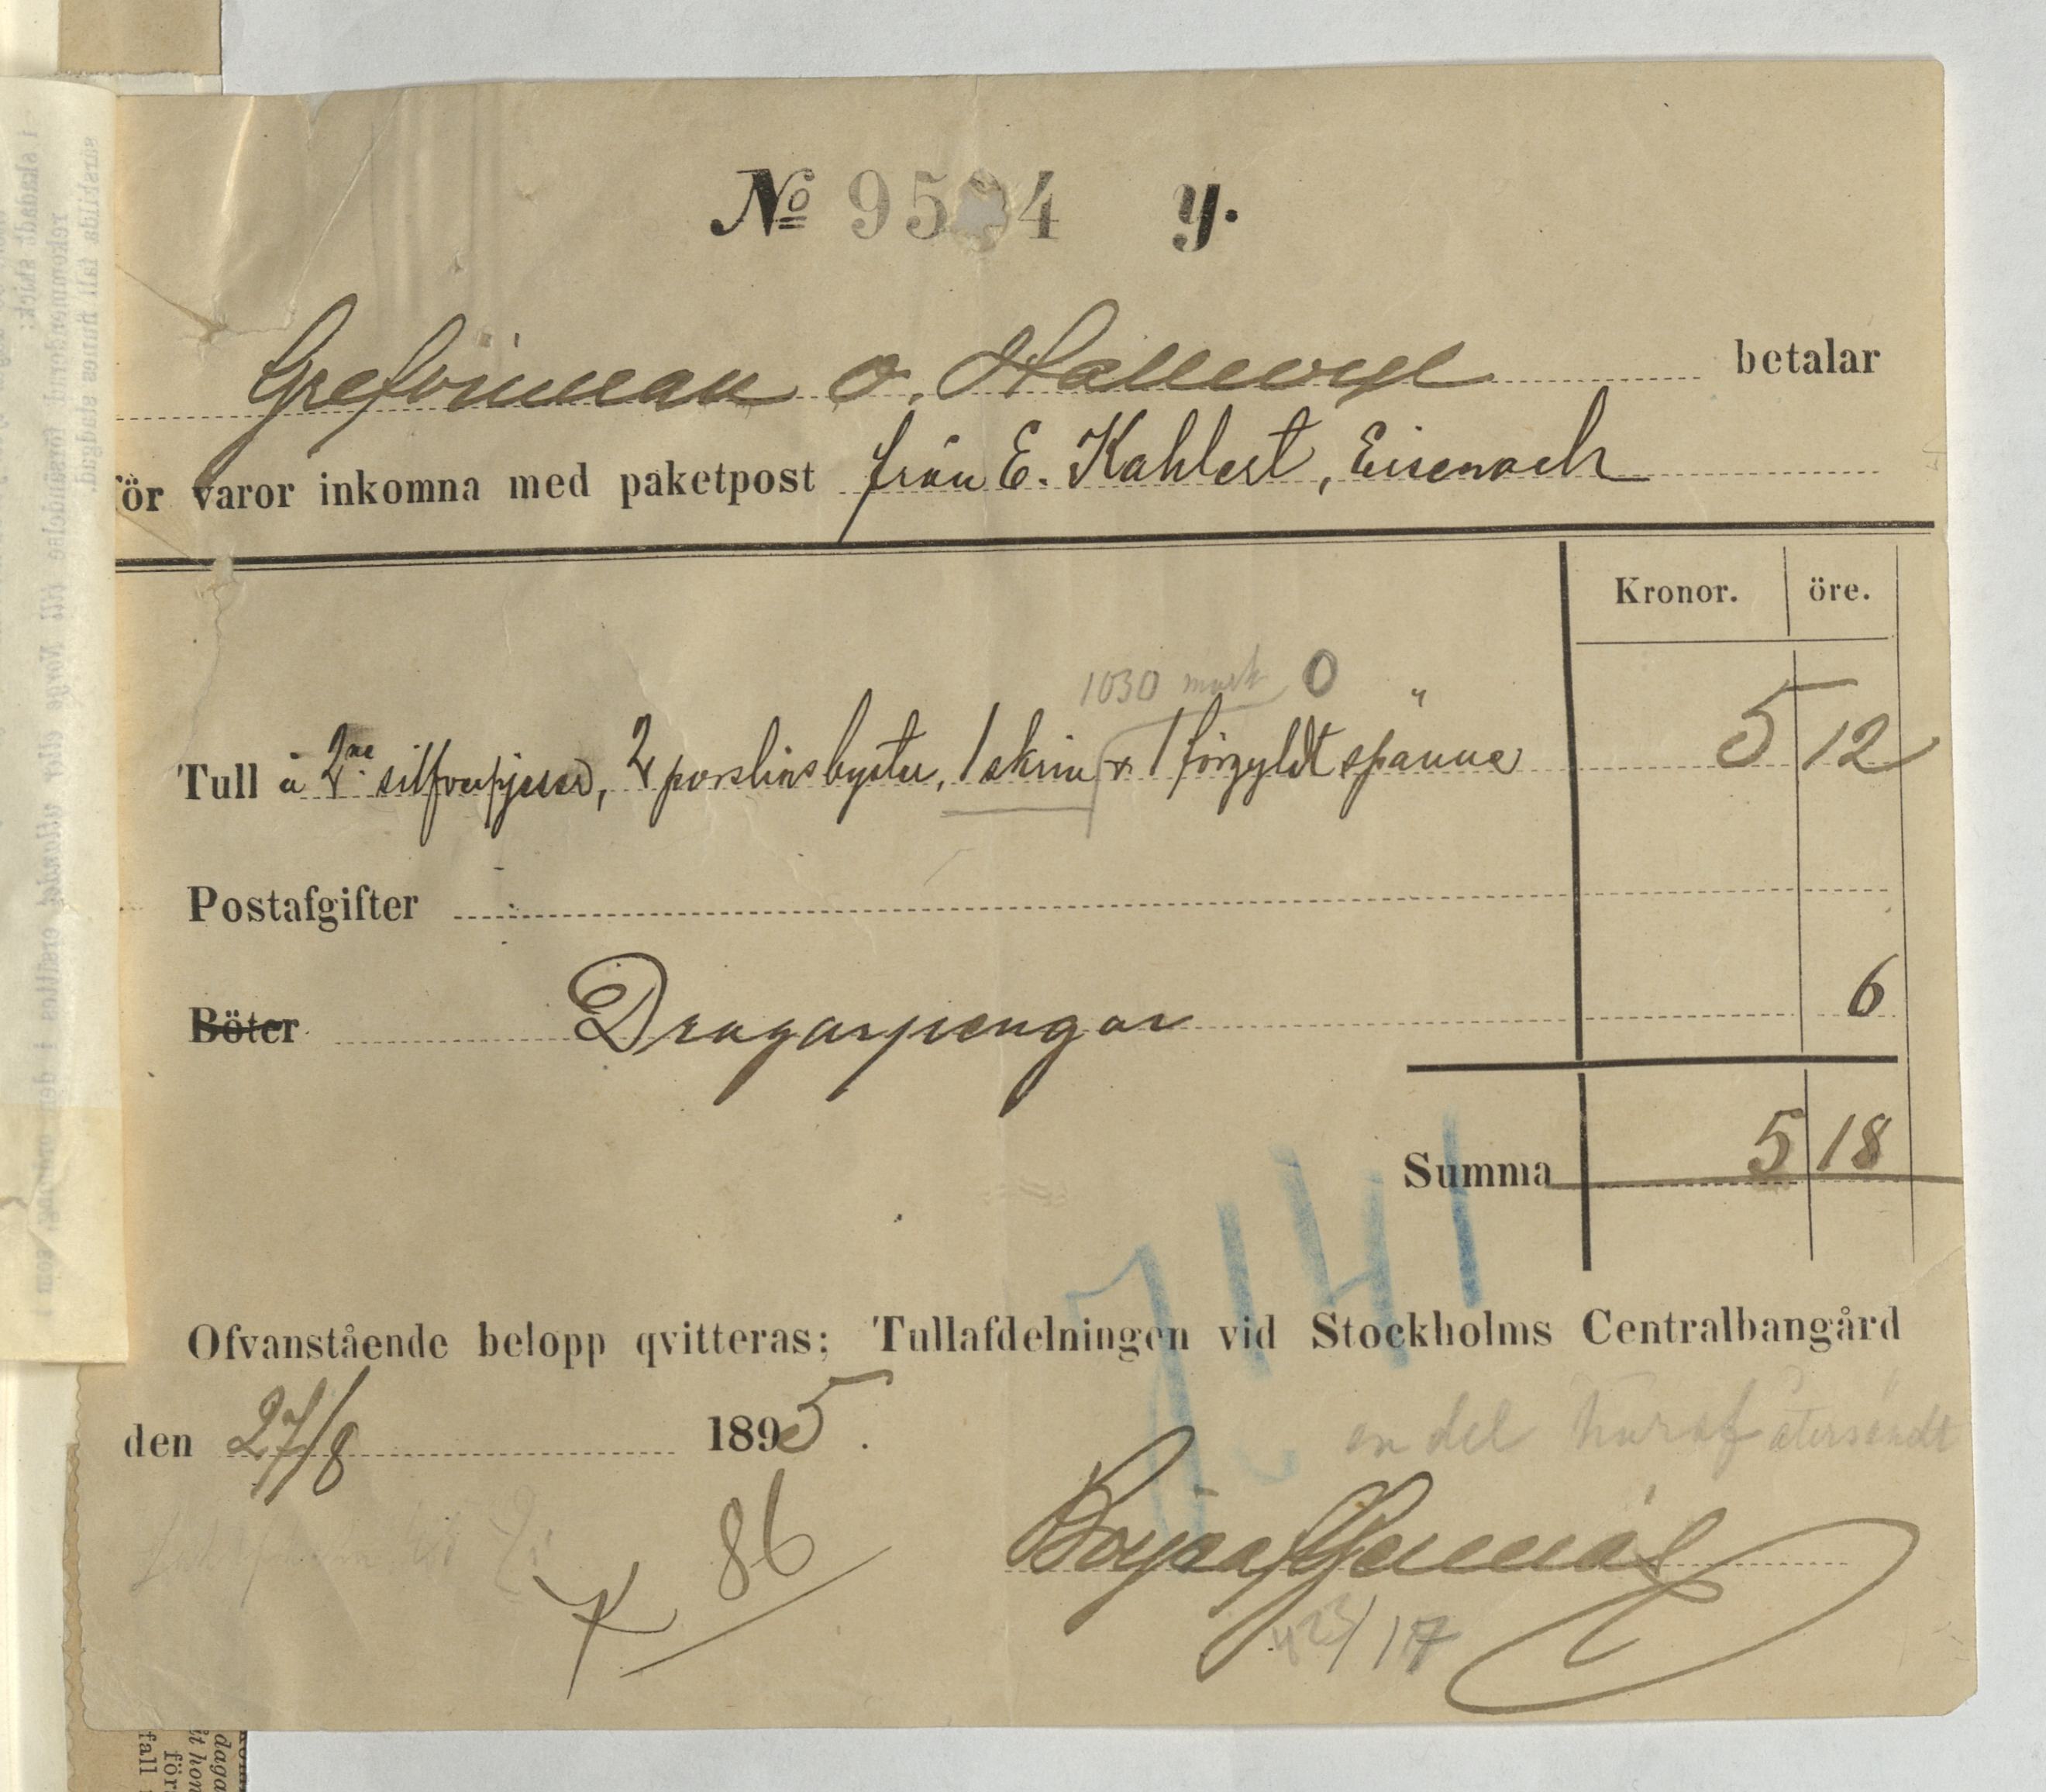 No 9594 y.
Grefvinnan v. Hallwyl betalar
för varor inkomna med paketpost från E. Kahlert, Eisenach
Kronor. öre.
1030 mark 0 "
Tull å 2ne silfverpjeser, 2 porslinsbyster, 1 skrin & 1 förgyldt spänne 5 12
Postafgifter
Böter Dragarpengar 6
Summa 5 18
7141
Ofvanstående belopp qvitteras; Tullafdelningen vid Stockholms Centralbangård
den 27/8 1895.
en del häraf återsändt
86